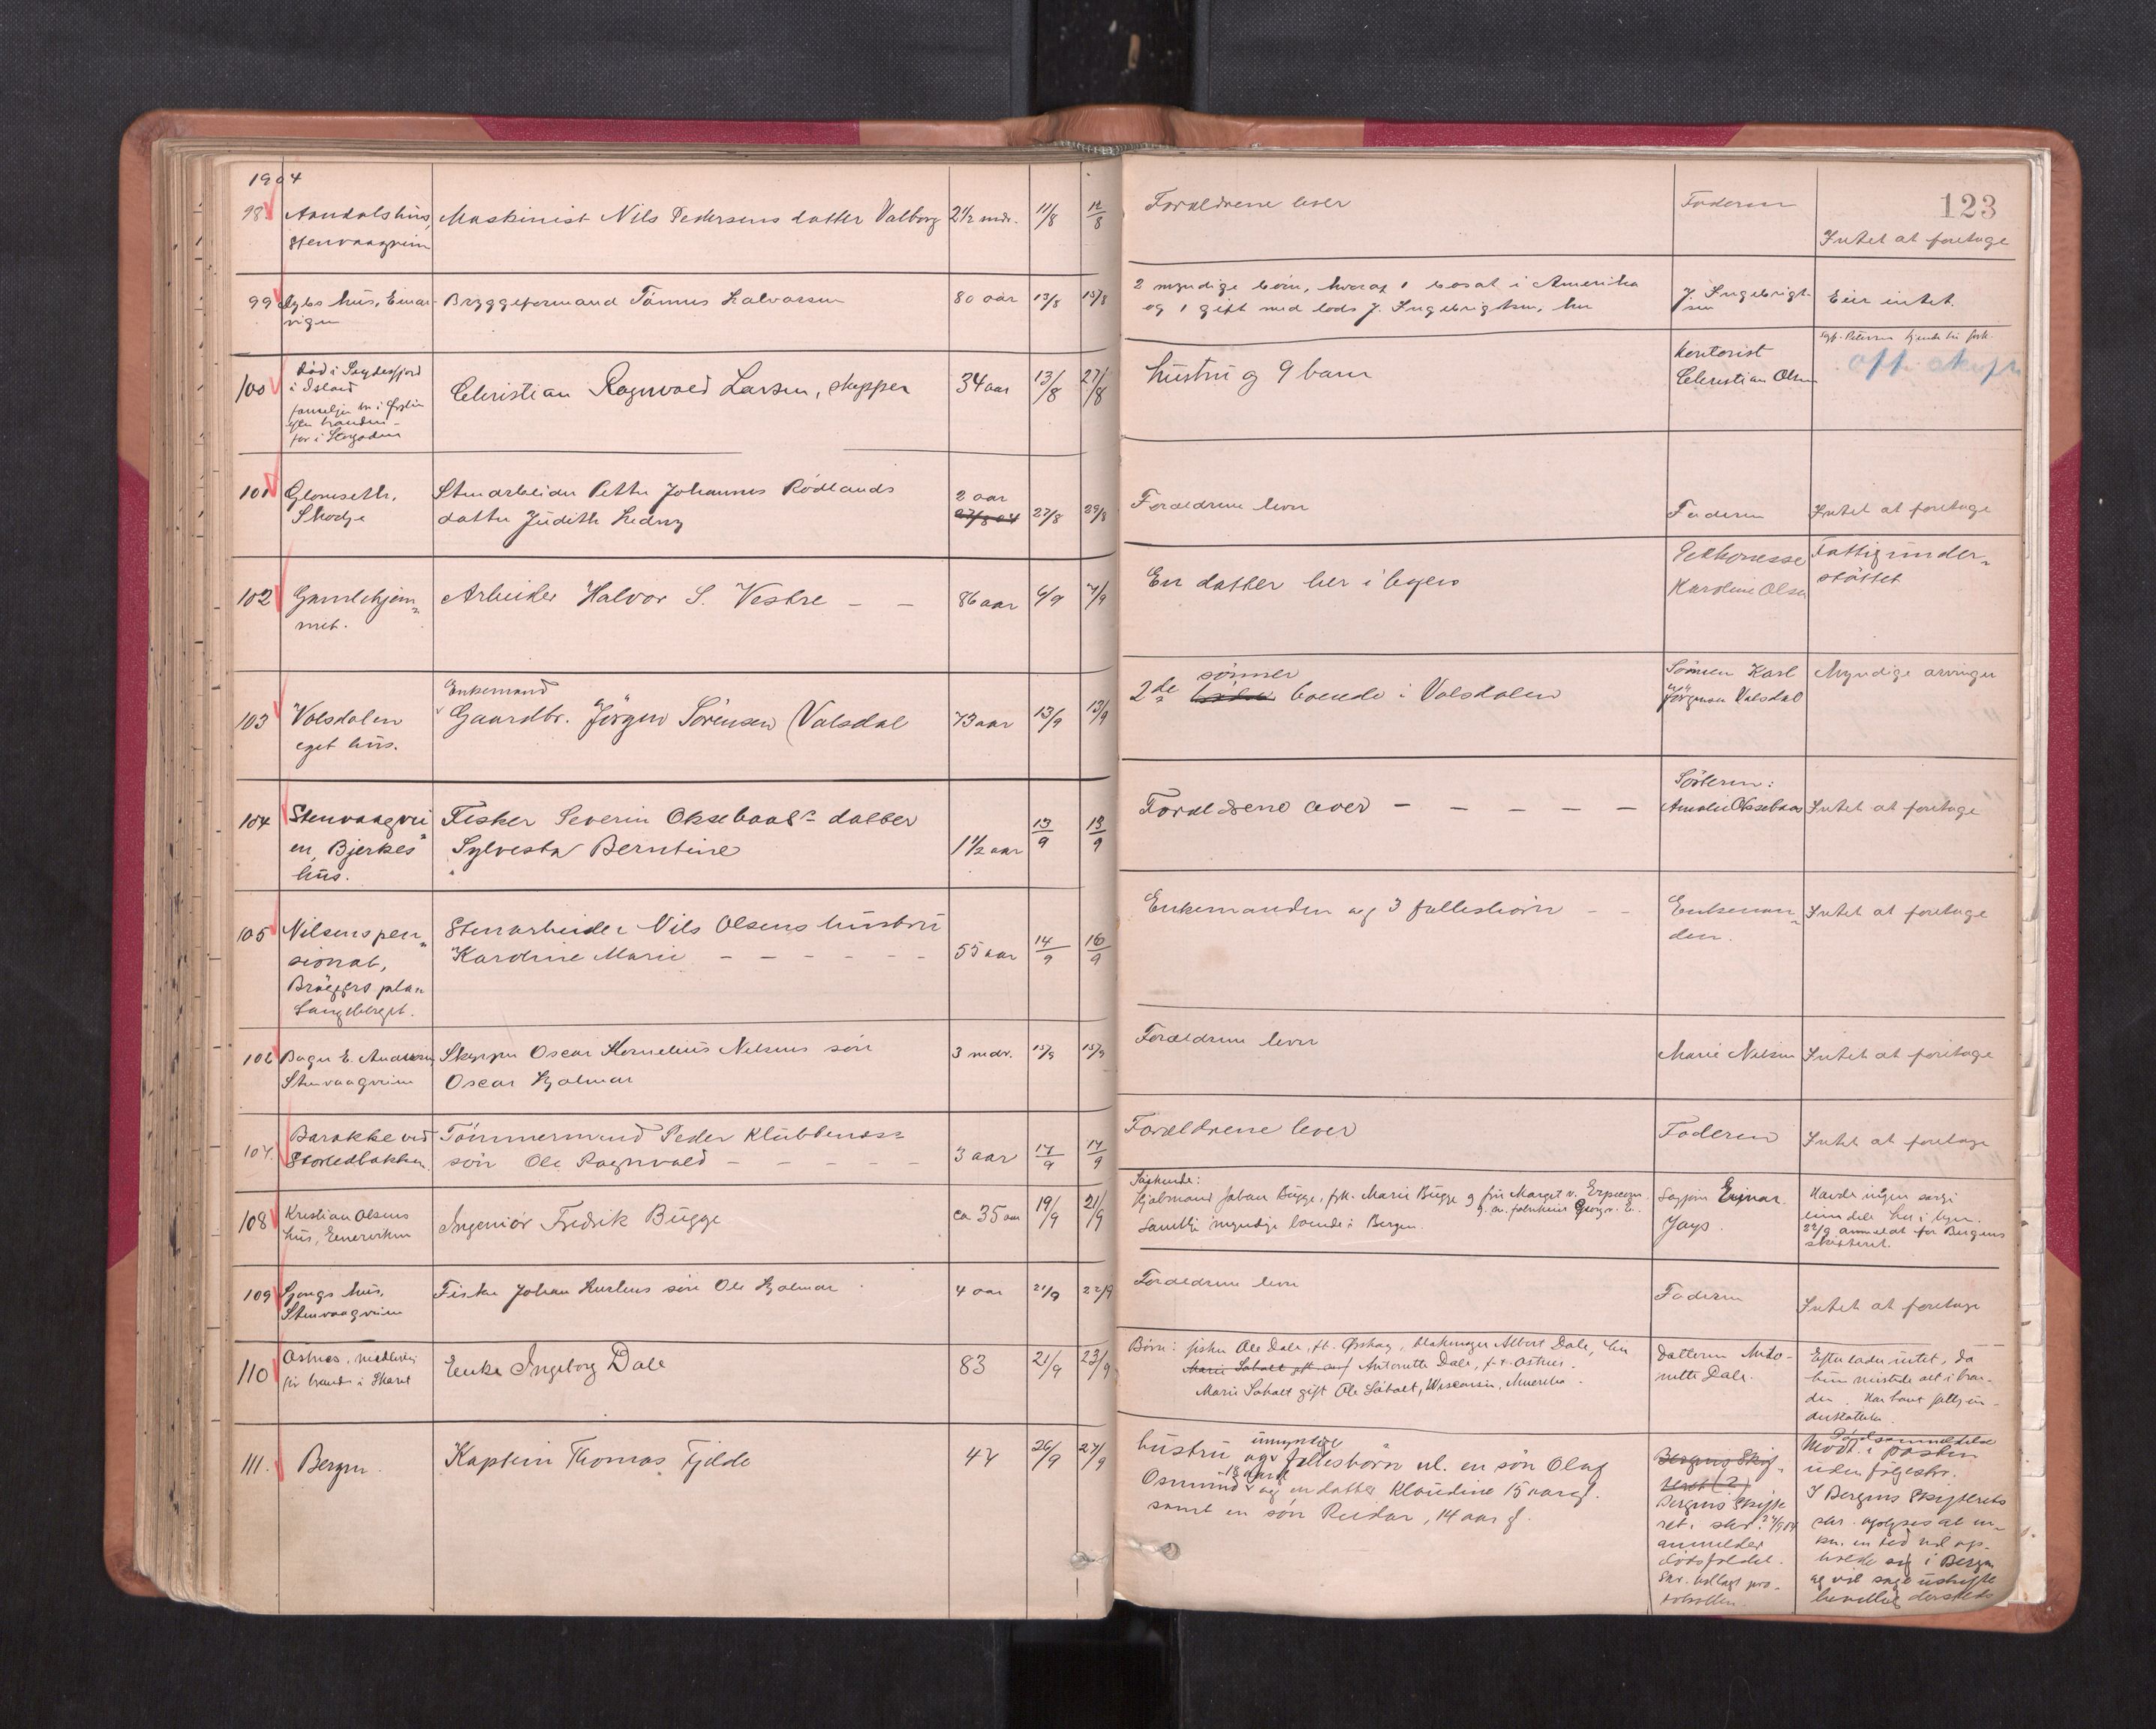 1904
98 Aandalshus, Maskinist Nils Pedersens datter Valborg 2½ mdr. 11/8 12/8
Stenvaagveien
99 hus, Einar- Bryggeformand Tönnes Halvorsen 80 aar 13/8 15/8
vigen
100 Död i Seydesfjord
i Island Christian Ragnvald Larsen, skipper 34 aar 13/8 27/8
familjen bor i
efter branden
för i Storgaden
101 Glomseth, Stenarbeider Petter Johannes Rödlands 2 aar
Skodje datter Judith Hedvig 27/8 04 27/8 29/8
102 Gamlehjem- Arbeider Halvor S. Vestre – – 86 aar 6/9 7/9
met.
Enkemand
103 Volsdalen Gaardbr. Jörgen Sörensen Valsdal 73 aar 13/9 13/9
eget hus.
104 Stenvaagvei Fisker Severin Oksebaas datter
en, Bjerkes Sylvesta Berntine 1½ aar 13/9 13/9
hus.
105 Nilsens pen- Stenarbeider Nils Olsens hustru
sionat, Karoline Marie – – – – – – 55 aar 14/9 16/9
Bräggers plan
Langeberget.
106 Bager E. Andersen, Skipper Oscar Kornelius Nelsens sön 3 mdr. 15/9 15/9
Stenvaagveien Oscar Hjalmar
107. Barakke ved Tömmermand Peder Klubbenes's
Storhedbakken sön Ole Ragnvald – – – – – 3 aar 17/9 17/9
108 Kristian Olsens Ingeniör Fredrik Bugge ca 35 aar 19/9 21/9
hus,
109 hus, Fisker Johan sön Ole Hjalmar 4 aar 21/9 22/9
Stenvaagveien
110 Astnes, Enke Ingeborg Dale 83 21/9 23/9
för branden i
111. Bergen. Kaptein Thomas Fjelde 47 26/9 27/9
123
Forældrene lever Faderen
Intet at foretage
2 myndige börn, hvoraf 1 bosat i Amerika J. Ingebrigt- Eier intet.
og 1 gift med lods J. Ingebrigtsen, her sen
Hustru og 9 barn Kontorist off. skifte
Christian Olsen
Forældrene lever Faderen Intet at foretage
En datter her i byen Fattigunder-
Karoline Olsen stöttet
sönner
2de boende i Volsdalen Sönnen Karl Myndige arvinger
Jörgensen Valsdal
Forældrene lever – – – – – Söstren: Intet at foretage
Amalie Oksebaas
Enkemanden og 3 fællesbörn – – Enkeman- Intet at foretage
den.
Forældrene lever Marie Nilsen Intet at foretage
Forældrene lever Faderen Intet at foretage
Söskende:
Johan Bugge, frk. Marie Bugge og fru Margit v. Erpecom Einar Havde ingen
samtlige myndige boende i Bergen. Jays. eiendele her i byen.
22/9 anmeldt for Bergens
skifteret.
Forældrene lever Faderen Intet at foretage
Börn: fisker Ole Dale, Albert Dale, her Datteren Anto- Efterlader intet, da
Antonette Dale, f. t. Astnes. nette Dale. hun mistede alt i bran-
Marie gift Ole Wisconsin, Amerika. den. Har havt fattigun-
derstöttelse.
umyndige
Hustru og fællesbörn nl. en sön Olaf Bergens Skif- Dödsanmeldelse
Osmund 18 aar og en datter Klaudine 15 aar g. teret (2) Modt. i posten
samt en sön Reidar, 14 aar g. Bergens Skifte uden fölgeskr.
ret. skr. 24/9 04 I Bergens Skifterets
anmelder skr. oplyses at en-
dödsfaldet. ken en tid vil op-
Skr. vedlagt pro- holde sig i Bergen
tokollen. og vil söge uskifte
bevilling dersteds